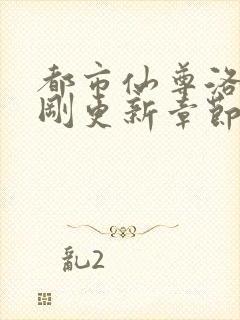 都市仙尊洛
剛更新章節
亂2